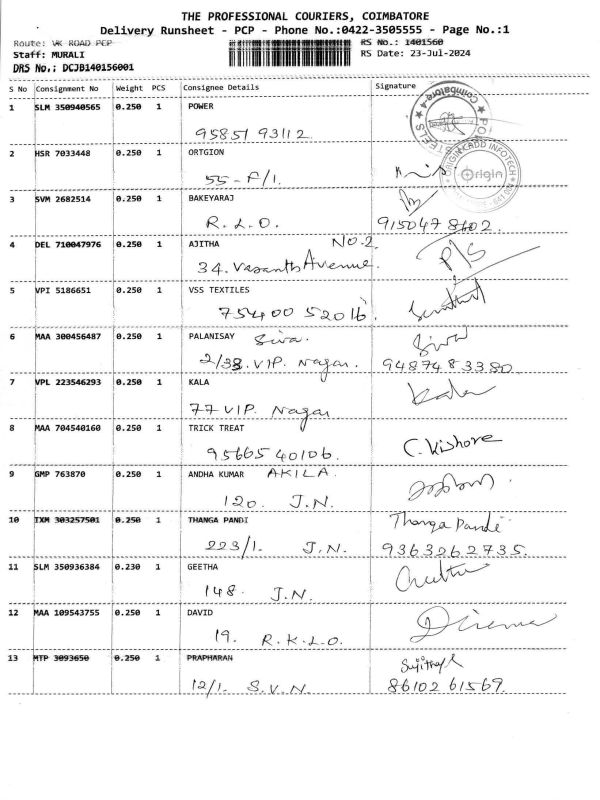 THE PROFESSIONAL COURIERS, COIMBATORE
Delivery Runsheet - PCP - Phone No.:0422-3505555 - Page No.:1
Route: VK ROAD PCP RS No.: 1401560
Staff: MURALI RS Date: 23-Jul-2024
DRS No.: DCJB140156001
S No Consignment No Weight PCS Consignee Details Signature
1 SLM 350940565 0.250 1 POWER
95851 93112
2 HSR 7033448 0.250 1 ORTGION
55-F/1.
ORIGIN CADD INFOTECH
Origin
3 SVM 2682514 0.250 1 BAKEYARAJ
R.L.O. 9150478602.
4 DEL 710047976 0.250 1 AJITHA NO.2
34. Vasanth Avenue. P/S
5 VPI 5186651 0.250 1 VSS TEXTILES
75400 52016.
6 MAA 300456487 0.250 1 PALANISAY Siva. Siva
2/38. VIP. Nagar. 9487483380
7 VPL 223546293 0.250 1 KALA Kala
77 VIP. Nagar
8 MAA 704540160 0.250 1 TRICK TREAT C. Kishore
95665 40106.
9 GMP 763870 0.250 1 ANDHA KUMAR AKILA.
120. J.N.
10 IXM 303257501 0.250 1 THANGA PANDI Thanga Pandi
223/1. J.N. 9363262735.
11 SLM 350936384 0.230 1 GEETHA
148. J.N.
12 MAA 109543755 0.250 1 DAVID
19. R.K.L.O.
13 MTP 3093650 0.250 1 PRAPHARAN
12/1. S.V.N. 86102 61569.